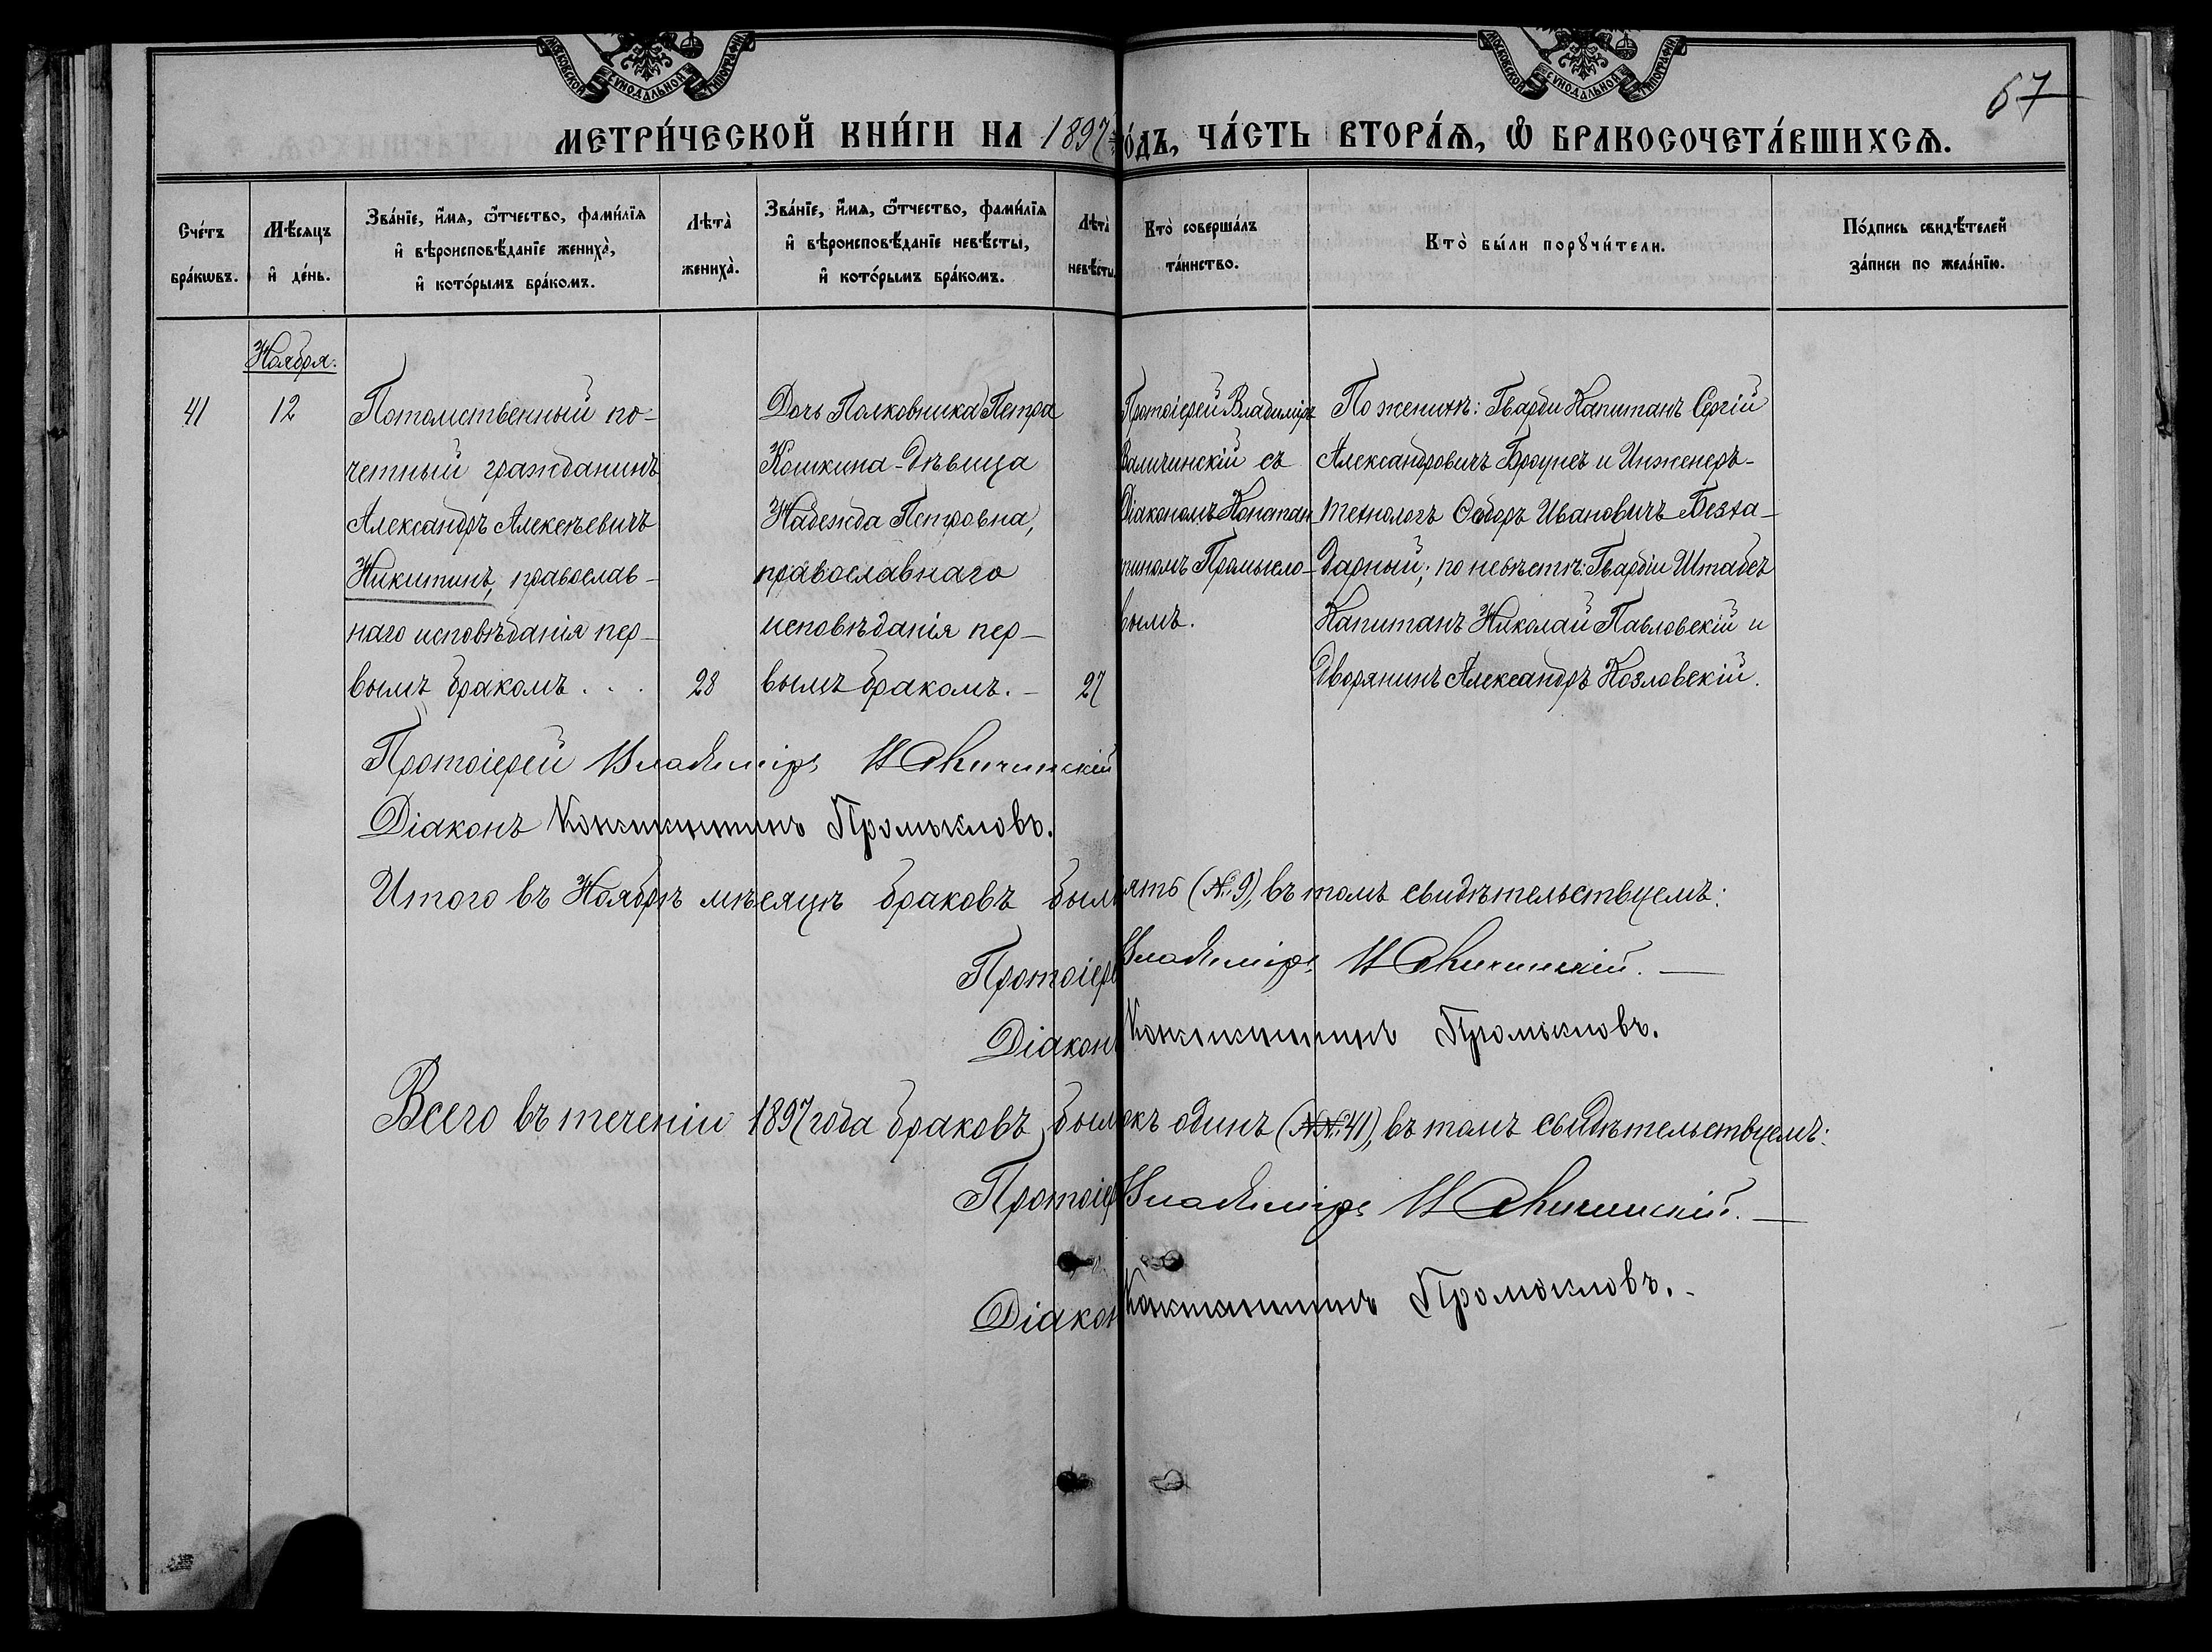 МОСКОВСКОЙ СѴНОДАЛЬНОЙ ТИПОГРАФІИ
МОСКОВСКОЙ СѴНОДАЛЬНОЙ ТИПОГРАФІИ
67
МЕТРИ́ЧЕСКОЙ КНИ́ГИ НА 1897 го́дъ, ЧА́СТЬ ВТОРА́Ѧ, Ѽ БРАКОСОЧЕТА́ВШИХСѦ.
Сче́тъ бра́кωвъ.
Мѣ́сяцъ и҆ де́нь.
Зва́нїе, и҆́мѧ, ѻ҆́тчество, фами́лїѧ и҆ вѣроисповѣ́данїе жениха̀, и҆ кото́рымъ бра́комъ.
Лѣта̀ жениха̀.
Зва́нїе, и҆́мѧ, ѻ҆́тчество, фами́лїѧ и҆ вѣроисповѣ́данїе невѣ́сты, и҆ кото́рымъ бра́комъ.
Лѣта̀ невѣ́сты.
Кто̀ соверша́лъ та́инство.
Кто̀ бы́ли порꙋчи́тели.
По́дпись свидѣ́телей за́писи по жела́нїю.
Ноября.
41
12
Потомственный по-
четный гражданинъ
Александръ Алексѣевичъ
Никитинъ, православ-
наго исповѣданія пер-
вымъ бракомъ . . .
28
Дочь Полковника Петра
Кошкина - дѣвица
Надежда Петровна,
православнаго
исповѣданія пер-
вымъ бракомъ. -
27
Протоіерей Владиміръ
съ
Діакономъ Констан-
тиномъ Промысло-
вымъ.
По женихѣ: Гвардіи Капитанъ Сергій
Александровичъ Броунсъ и Инженеръ-
технологъ Ѳедоръ Ивановичъ Безха-
дарный; по невѣстѣ: Гвардіи Штабсъ
Капитанъ Николай Павловскій и
Дворянинъ Александръ Козловскій.
Протоіерей Владиміръ
Діаконъ Константинъ Промысловъ.
Итого въ Ноябрѣ мѣсяцѣ браковъ был ять (№ 9), въ томъ свидѣтельствуемъ:
Протоіере Владиміръ
Діаконъ Константинъ Промысловъ.
Всего въ теченіи 1897 года браковъ был окъ одинъ (№№ 41), въ томъ свидѣтельствуемъ:
Протоіер Владиміръ
Діакон Константинъ Промысловъ. -